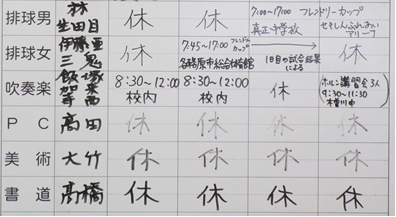 排球男 林 休 休 7:00〜17:00 フレンドリーカップ
生田目 真正中学校 せきしんふれあいアリーナ
排球女 伊藤 亜 休 7:45〜17:00 フレンドリーカップ 1日目の試合結果による 休
三鬼 各務原市総合体育館
吹奏楽 飯塚 8:30〜12:00 8:30〜12:00 休 (ホルン講習会3人
加賀 校内 校内 9:30〜11:30
木曽川中)
PC 高田 休 休 休 休
美術 大竹 休 休 休 休
書道 髙橋 休 休 休 休